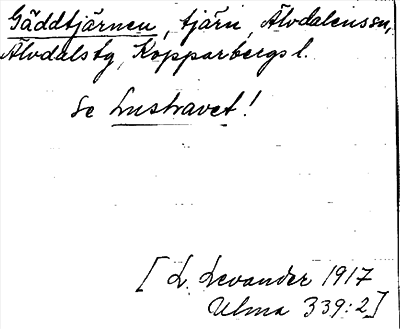 Gäddtjärnen, tjärn, Älvdalens sn,
Älvdals tg, Kopparbergs l.
se Lustravet!
[L. Levander 1917
Ulma 339:2]